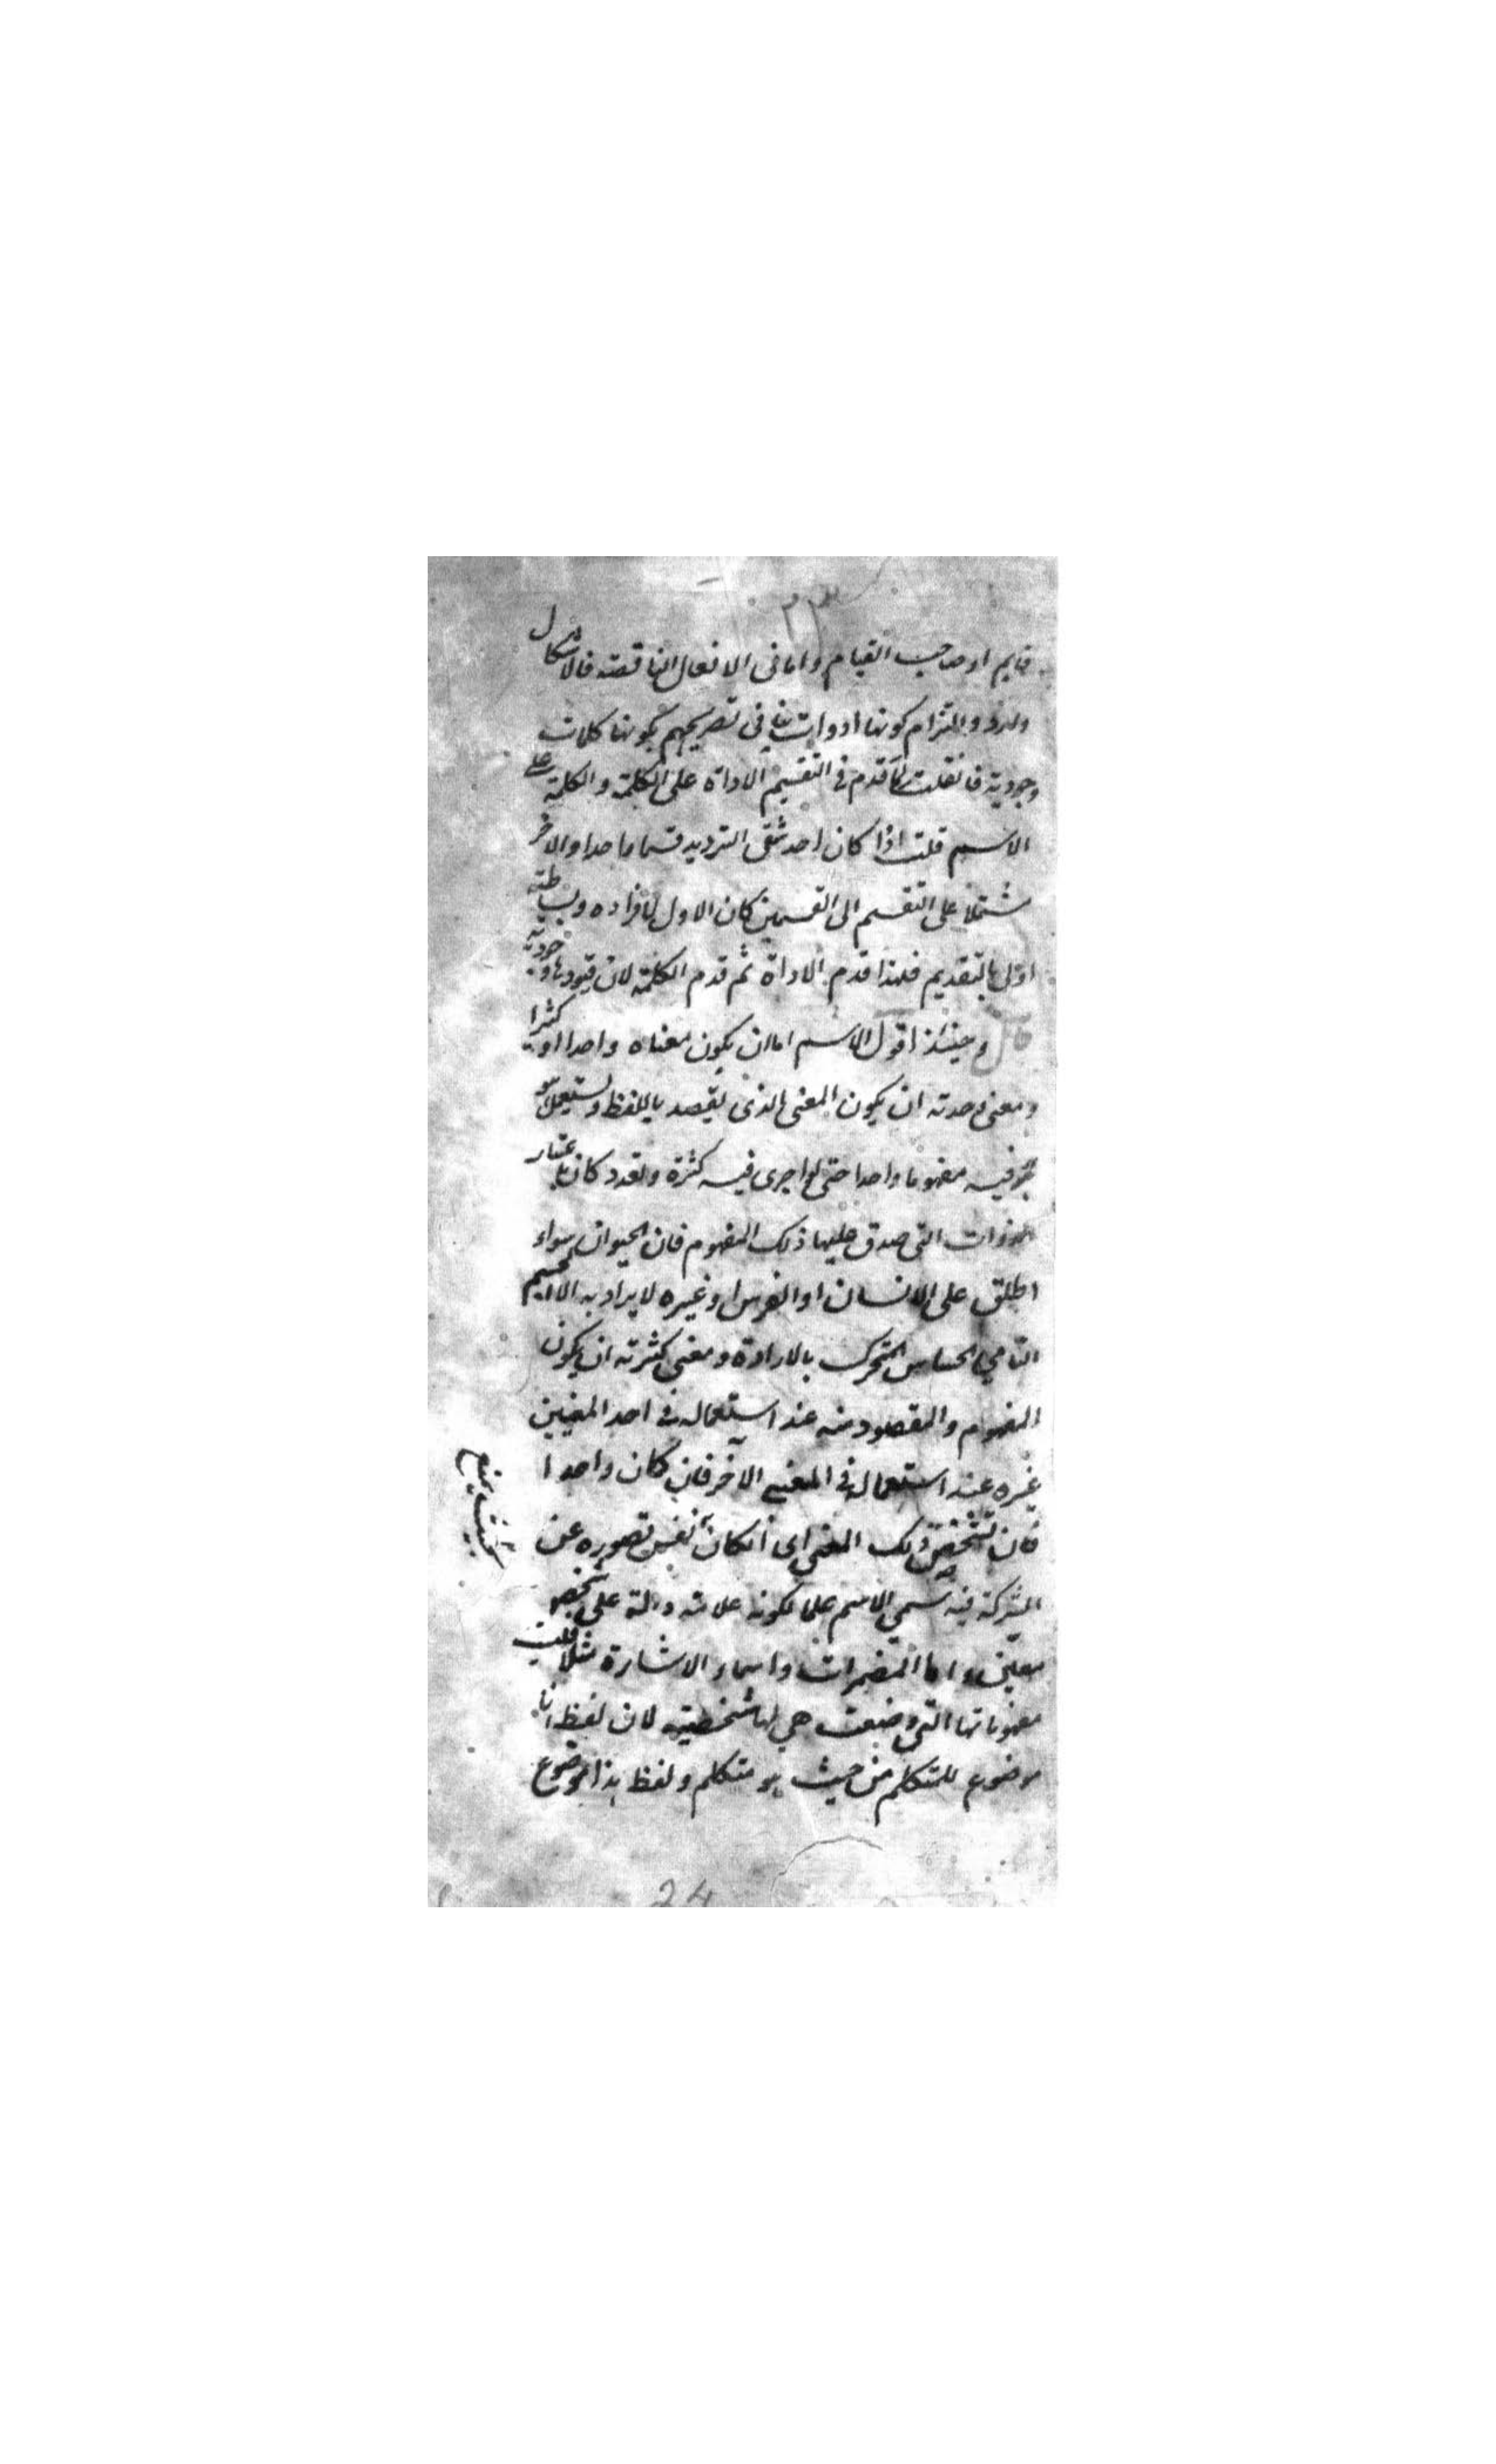 قايم او صاحب القيام واما فى الافعال الناقصة فالاشكال
وارد والتزام كونها ادوات ينافى تصريحهم بكونها كلمات
وجودية فان قلت لم قدم فى التقسيم الاداة على الكلمة والكلمة على
الاسم قلت اذا كان احد شقى الترديد قسما واحدا والاخر
مشتملا على التقسيم الى القسمين كان الاول لافراده وبساطته
اولى بالتقديم فلهذا قدم الاداة ثم قدم الكلمة لان قيودها وجودية
قال وحينئذ اقول الاسم اما ان يكون معناه واحدا او كثيرا
ومعنى وحدته ان يكون المعنى الذى يقصد باللفظ ويستعمل هو
فيه مفهوما واحدا حتى لو اجرى فيه كثرة وتعدد كان باعتبار
الذوات التى صدق عليها ذلك المفهوم فان الحيوان سواء
اطلق على الانسان او الفرس او غيره لا يراد به الا الجسم
النامي الحساس المتحرك بالارادة ومعنى كثرته ان يكون
المفهوم والمقصود منه عند استعماله فى احد المعنيين
غيره عند استعماله فى المعنى الآخر فان كان واحدا
فان تشخص ذلك المعنى اى ان كان نفس تصوره عن
الشركة فيه سمي الاسم علما لكونه علامة دالة على شخص
معين واما المضمرات واسماء الاشارة مثلا فليست
مفهوماتها التى وضعت هي لها شخصية لان لفظ انا
موضوع للمتكلم من حيث هو متكلم ولفظ هذا موضوع
بحيث يمنع
24